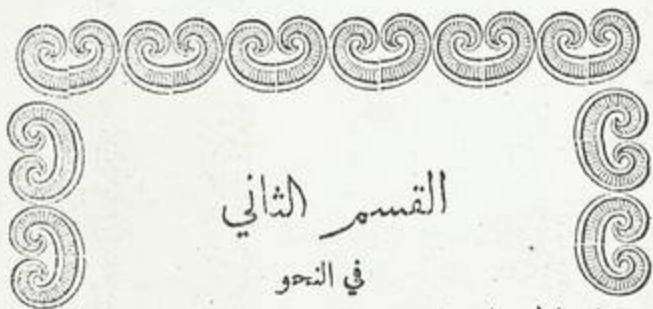 القسم الثاني
في النحو